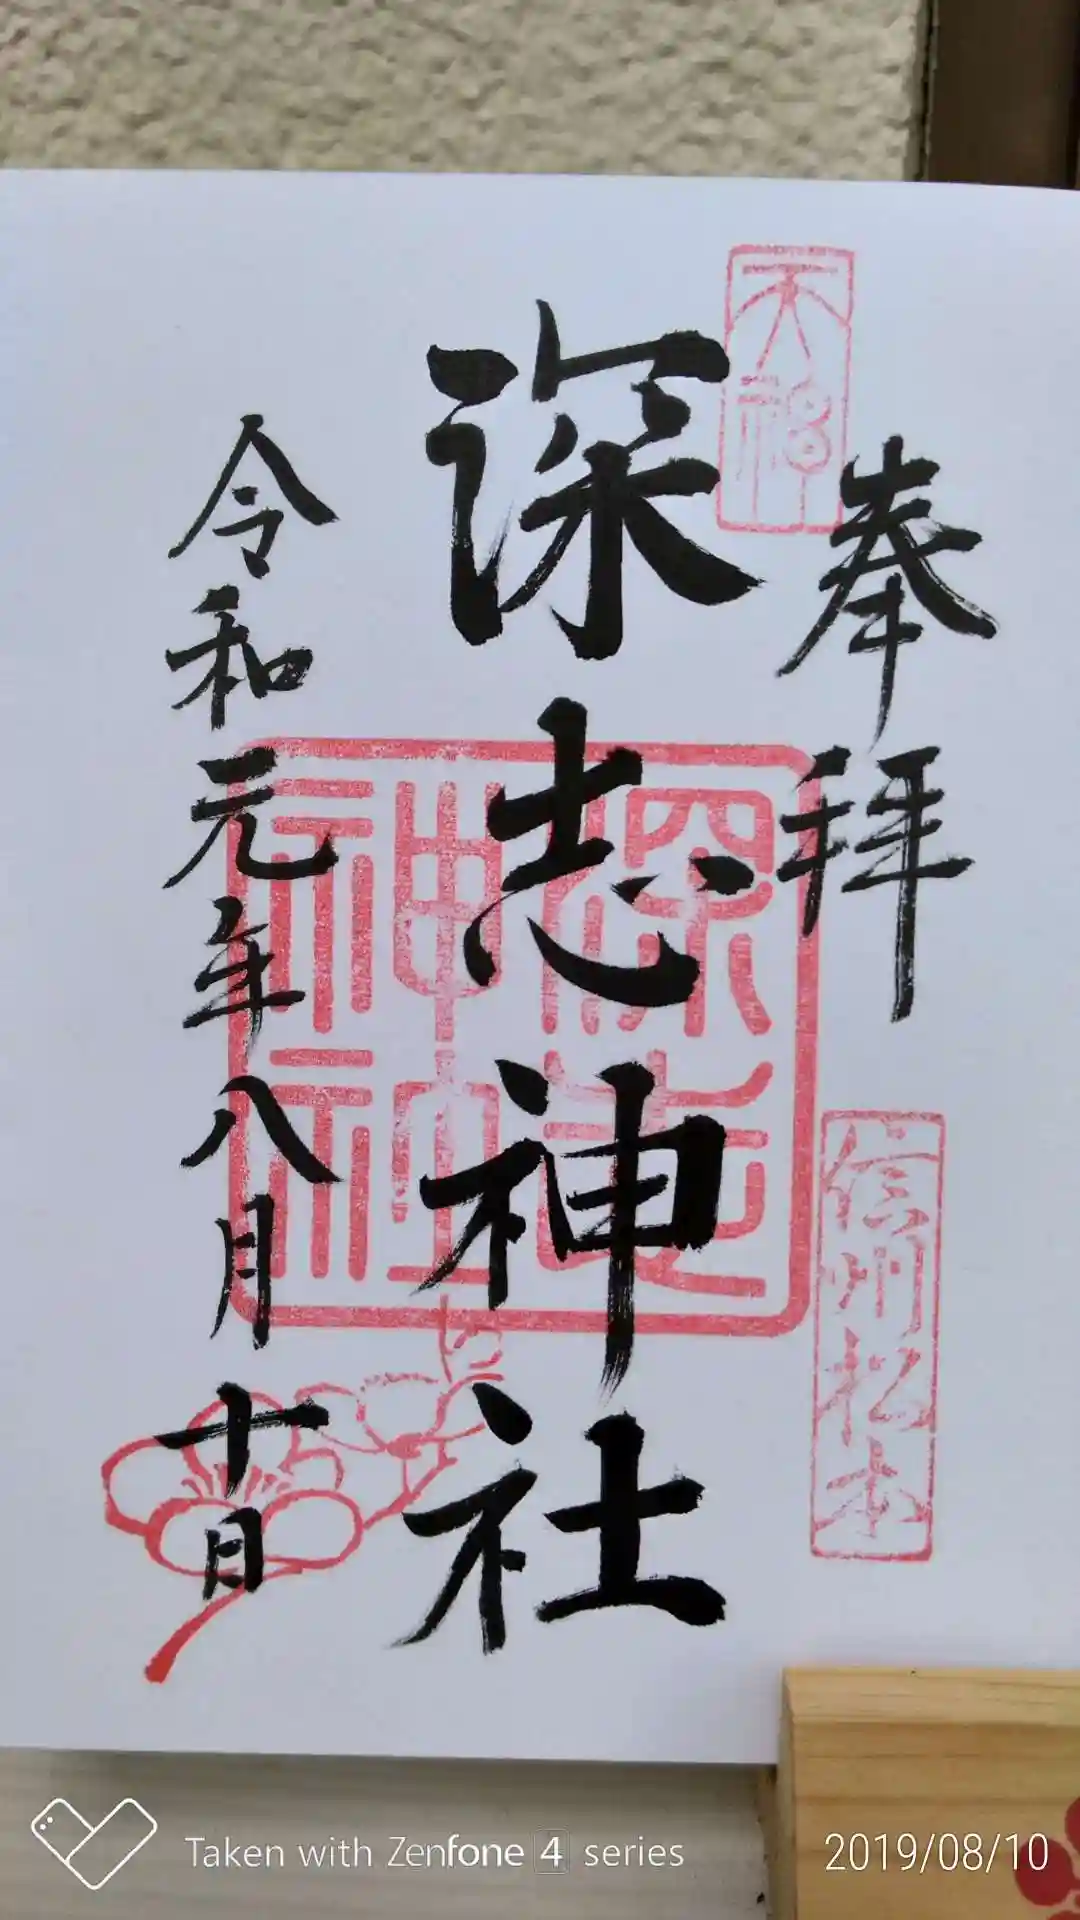 天神
奉拝
信州松本
深志神社
深志
神社
令和元年八月十日
Taken with Zenfone 4 series
2019/08/10